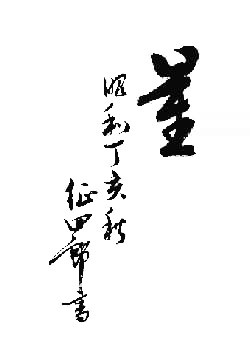 昭和丁亥秋
征四郎書